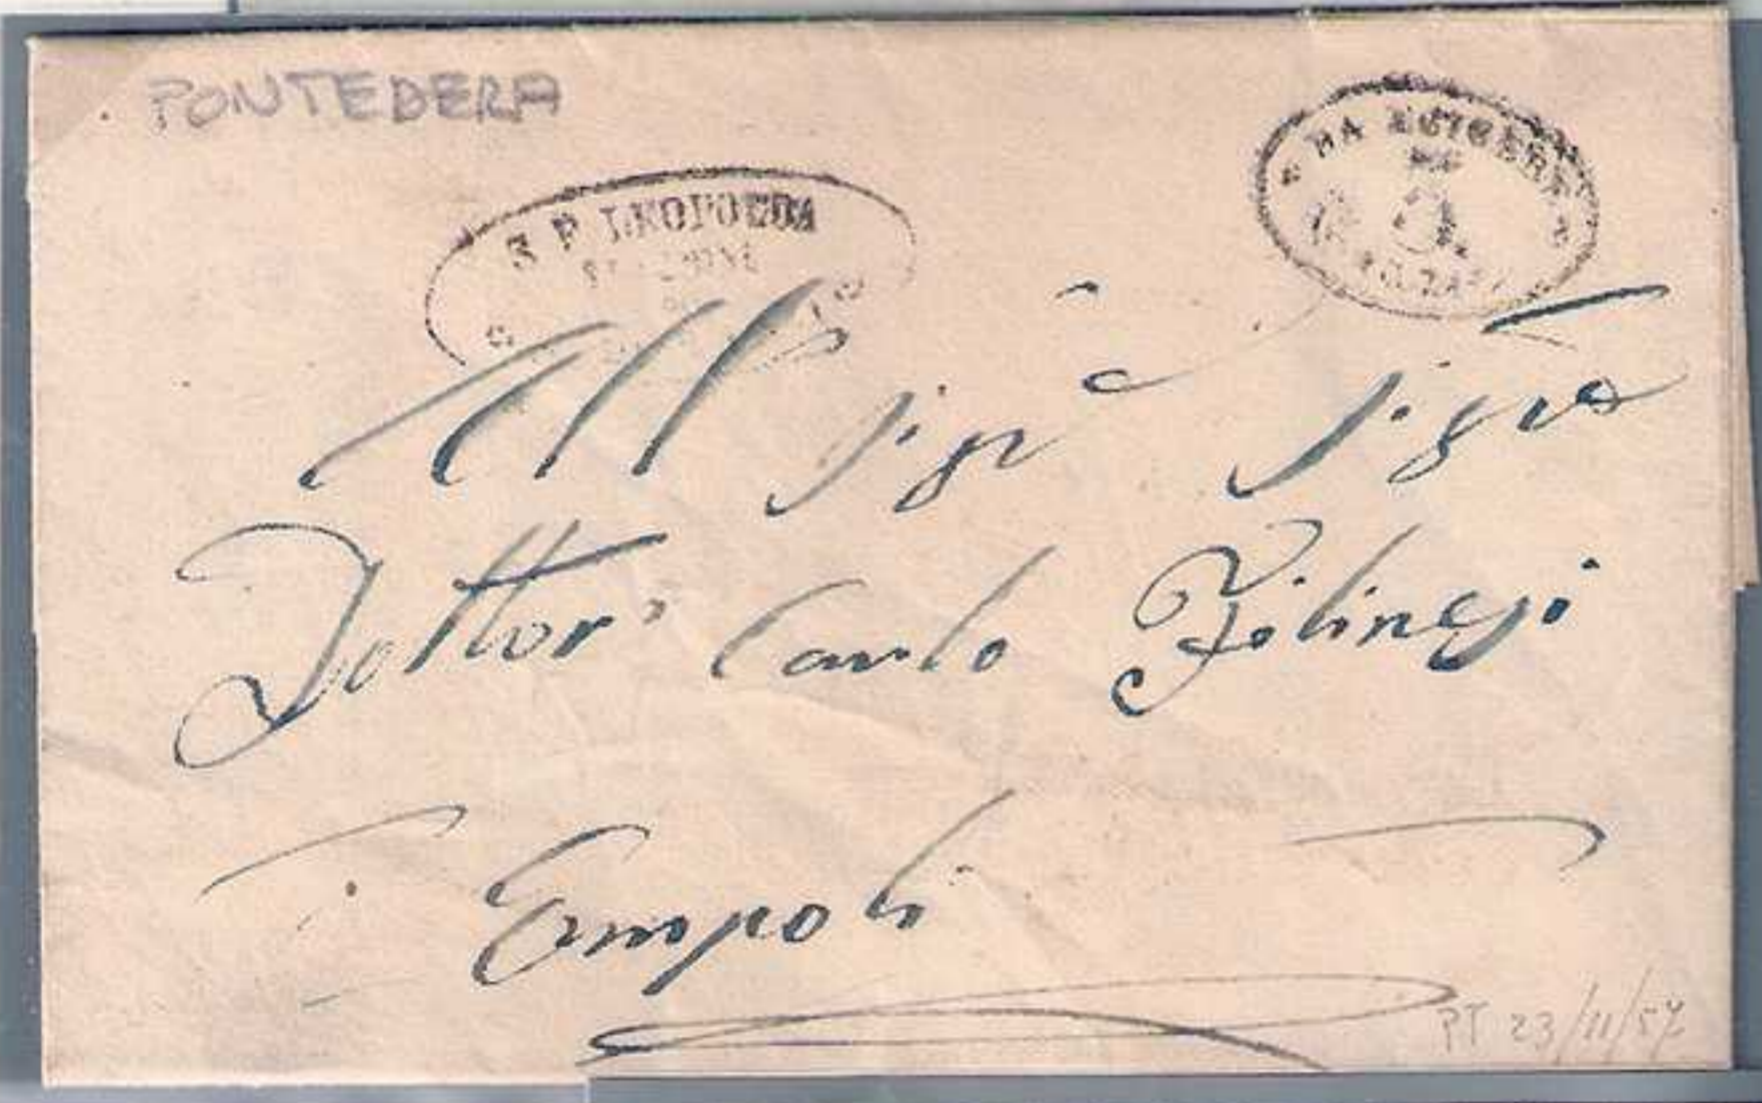 PONTEDERA
S F LEOPOLDA
DA ESIGERE
All Sigre Sigre
Dottor Carlo
Empoli
PT 23/11/57